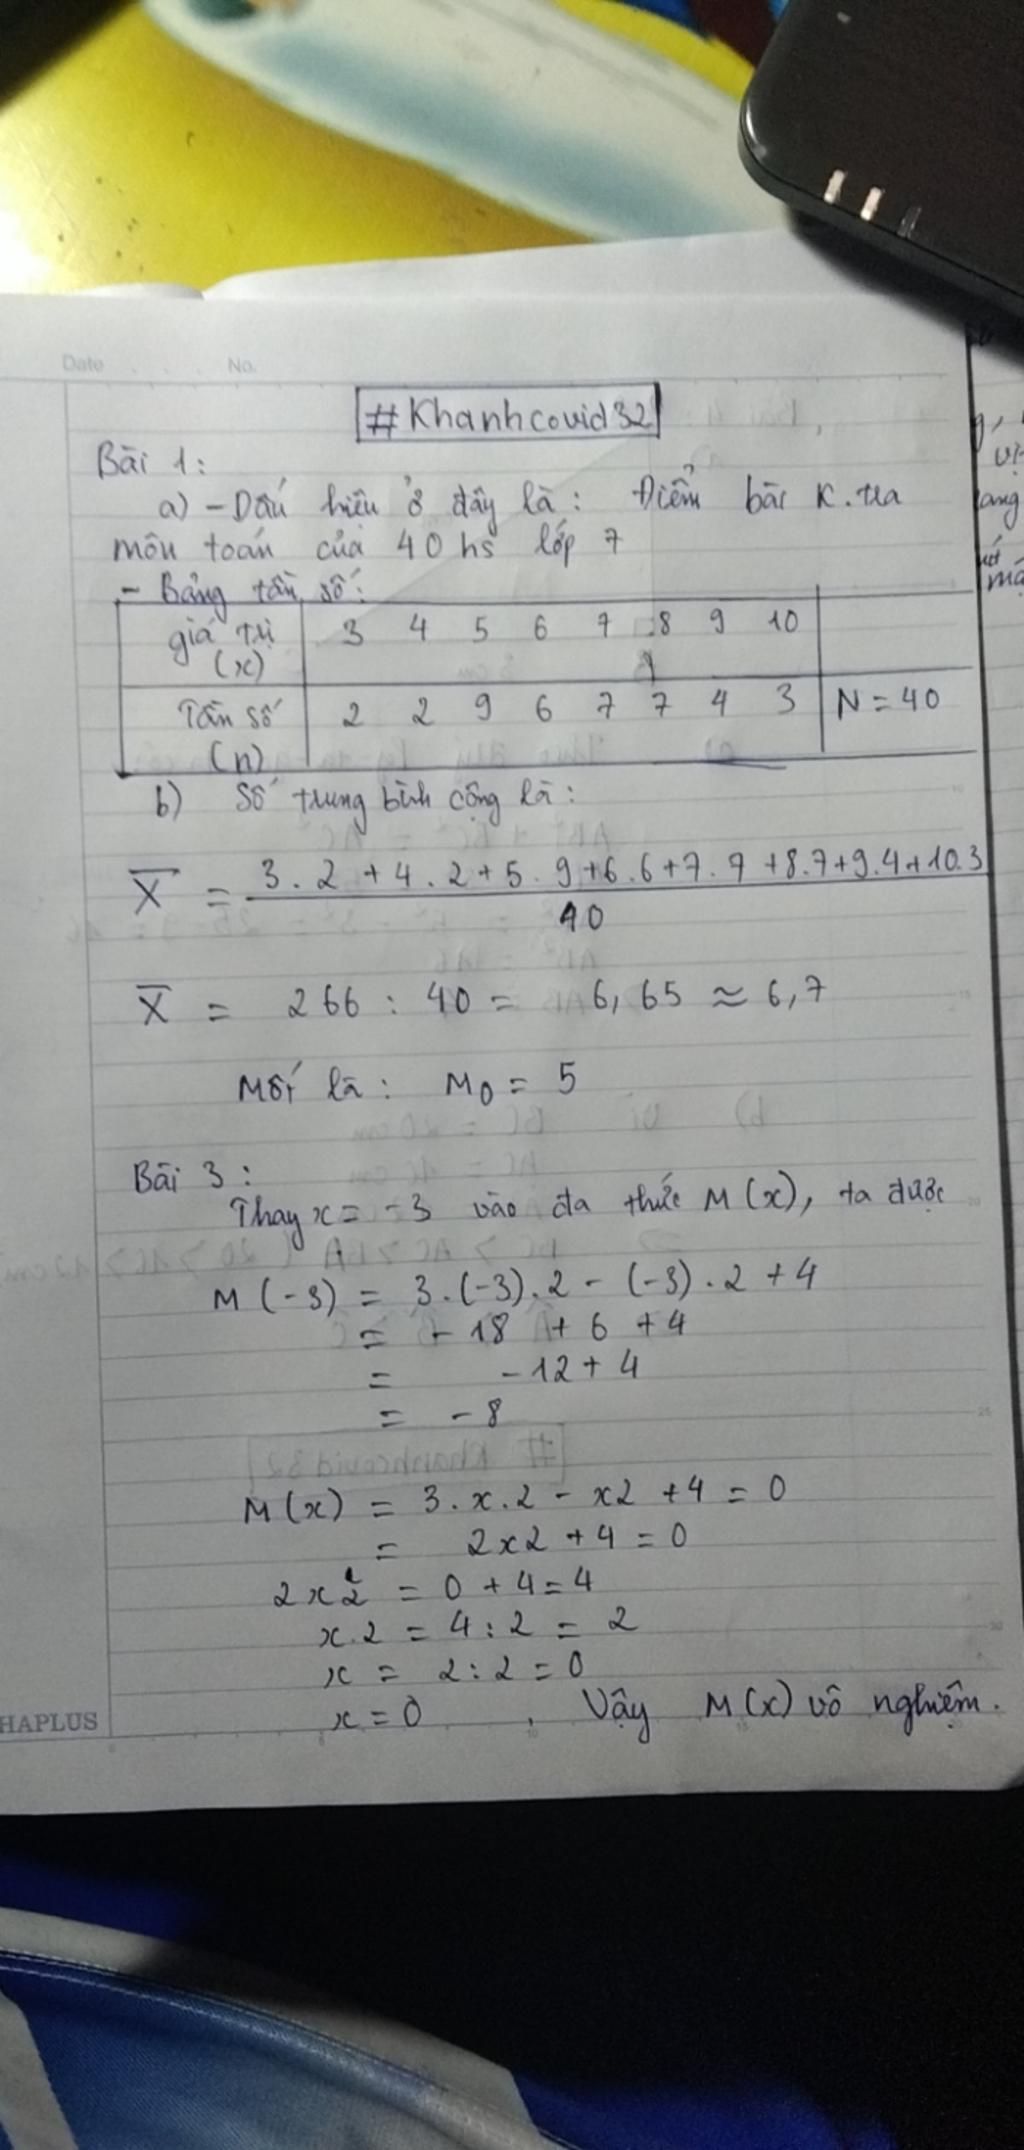 Date No.
#Khanhcovid32
Bài 1:
a) - Dấu hiệu ở đây là: Điểm bài K.tra
môn toán của 40 hs lớp 7
- Bảng tần số:
giá trị (x) 3 4 5 6 7 8 9 10
Tần số (n) 2 2 9 6 7 7 4 3 N = 40
b) Số trung bình cộng là:
X̄ = 3.2+4.2+5.9+6.6+7.7+8.7+9.4+10.3
40
X̄ = 266 : 40 = 6,65 ≈ 6,7
Mốt là: M0 = 5
Bài 3:
Thay x = -3 vào đa thức M(x), ta được
M(-3) = 3.(-3).2 - (-3).2 + 4
= -18 + 6 + 4
= -12 + 4
= -8
M(x) = 3.x.2 - x2 + 4 = 0
= 2x2 + 4 = 0
2x2 = 0 + 4 = 4
x.2 = 4 : 2 = 2
x = 2 : 2 = 0
x = 0, Vậy M(x) vô nghiệm.
HAPLUS